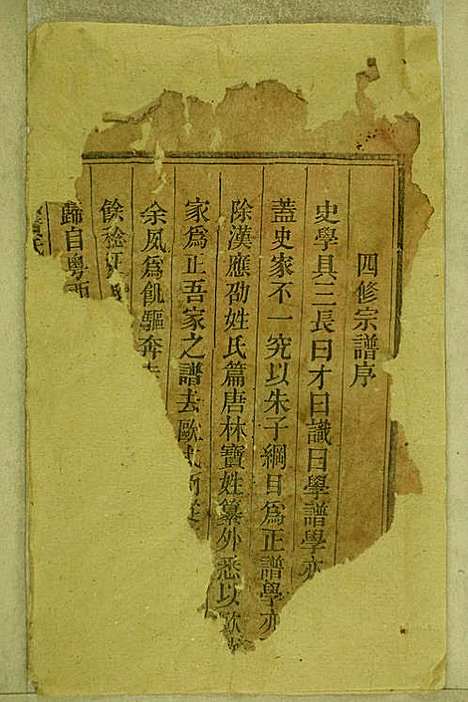 四修宗譜序
史學具三長曰才曰識曰學譜學亦
蓋史家不一究以朱子綱目為正譜學亦
除漢應劭姓氏篇唐林寶姓纂外悉以歐
家為正吾家之譜去歐
余夙為飢驅奔走
餘稔
歸自粵西